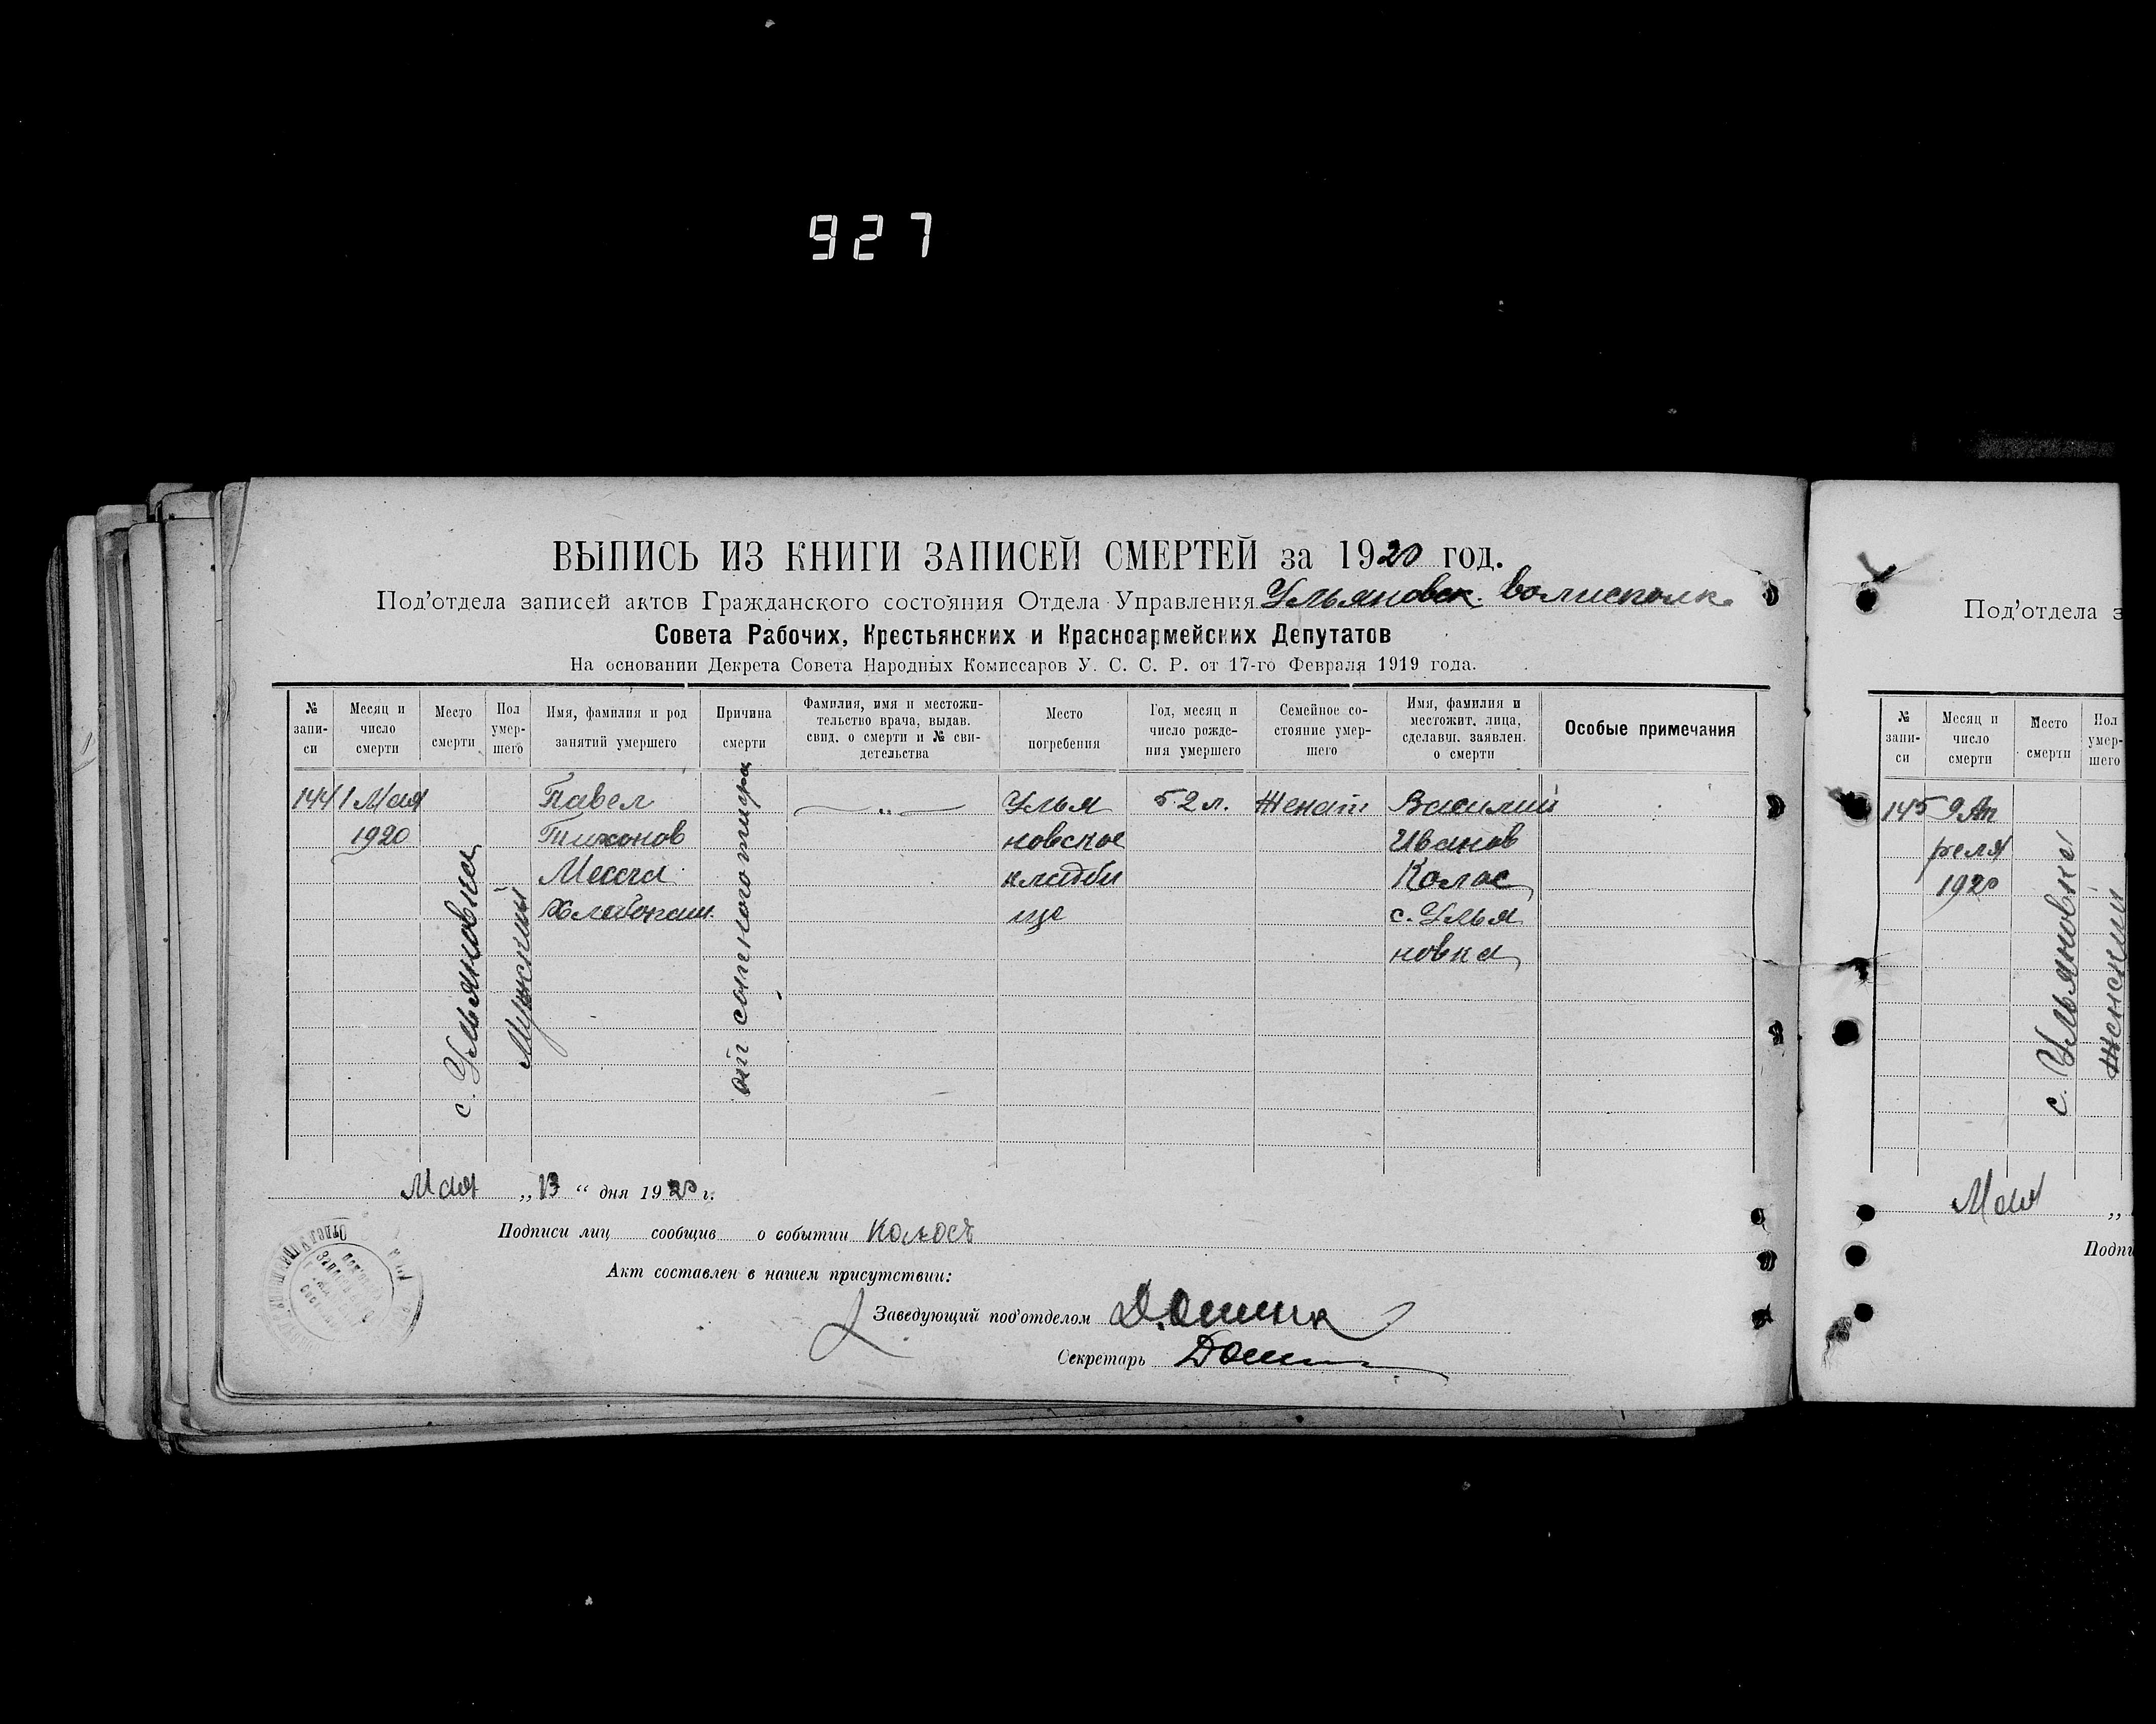 927
ВЫПИСЬ ИЗ КНИГИ ЗАПИСЕЙ СМЕРТЕЙ за 1920 год.
Под'отдела записей актов Гражданского состояния Отдела Управления Ульяновск. волисполк.
Совета Рабочих, Крестьянских и Красноармейских Депутатов
На основании Декрета Совета Народных Комиссаров У. С. С. Р. от 17-го Февраля 1919 года.
№ запи-
си
Месяц и
число
смерти
Место
смерти
Пол
умер-
шего
Имя, фамилия и род
занятий умершего
Причина
смерти
Фамилия, имя и местожи-
тельство врача, выдав.
свид. о смерти и № сви-
детельства
Место
погребения
Год, месяц и
число рожде-
ния умершего
Семейное со-
стояние умер-
шего
Имя, фамилия и
местожит. лица,
сделавш. заявлен.
о смерти
Особые примечания
144
1 Мая
1920
с. Ульяновка
Мужский
Павел
Тихонов
Месса
Хлебопаш.
от сыпного тифа
"
Улья
новское
кладби
ще
52 л.
Женат
Василий
Иванов
Колос
с. Улья
новка
Мая „13“ дня 1920 г.
Подписи лиц сообщив о событии Колосъ
Акт составлен в нашем присутствии:
Заведующий под'отделом
Секретарь
Под'отдела з
№
запи-
си
Месяц и
число
смерти
Место
смерти
Пол
умер-
шего
145
9 Ап
реля
1920
с. Ульяновка
Женский
Мая „
Подпи